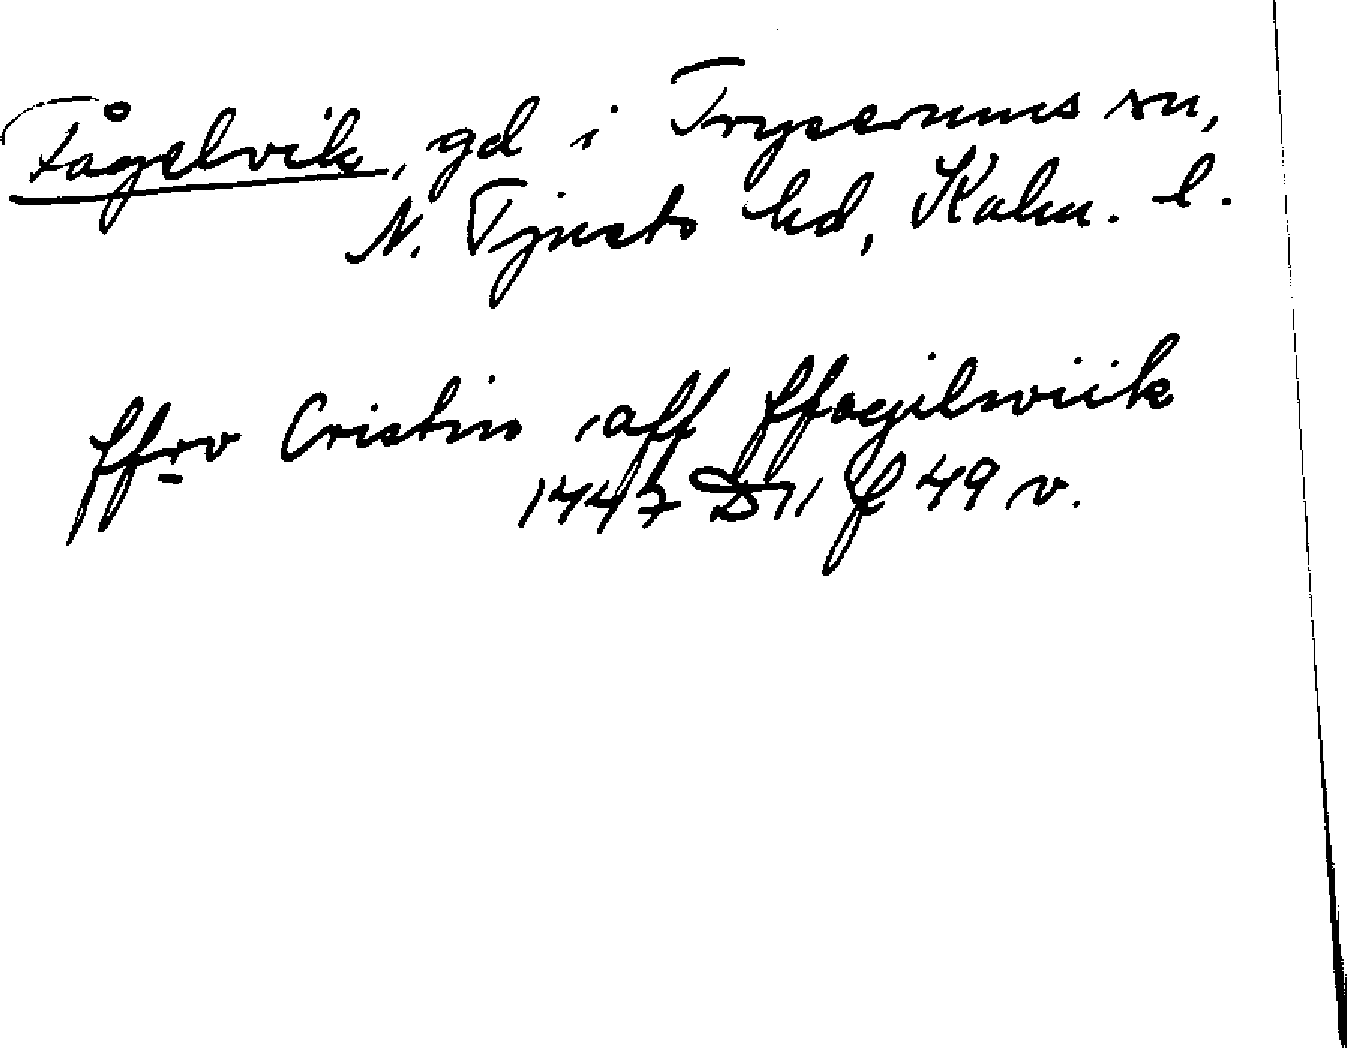 Fågelvik, gd i Tryserums sn,
N. Tjusts hd, Kalm. l.
ffrv Cristin aff ffogilwiik
1447 D 11 f 49 v.